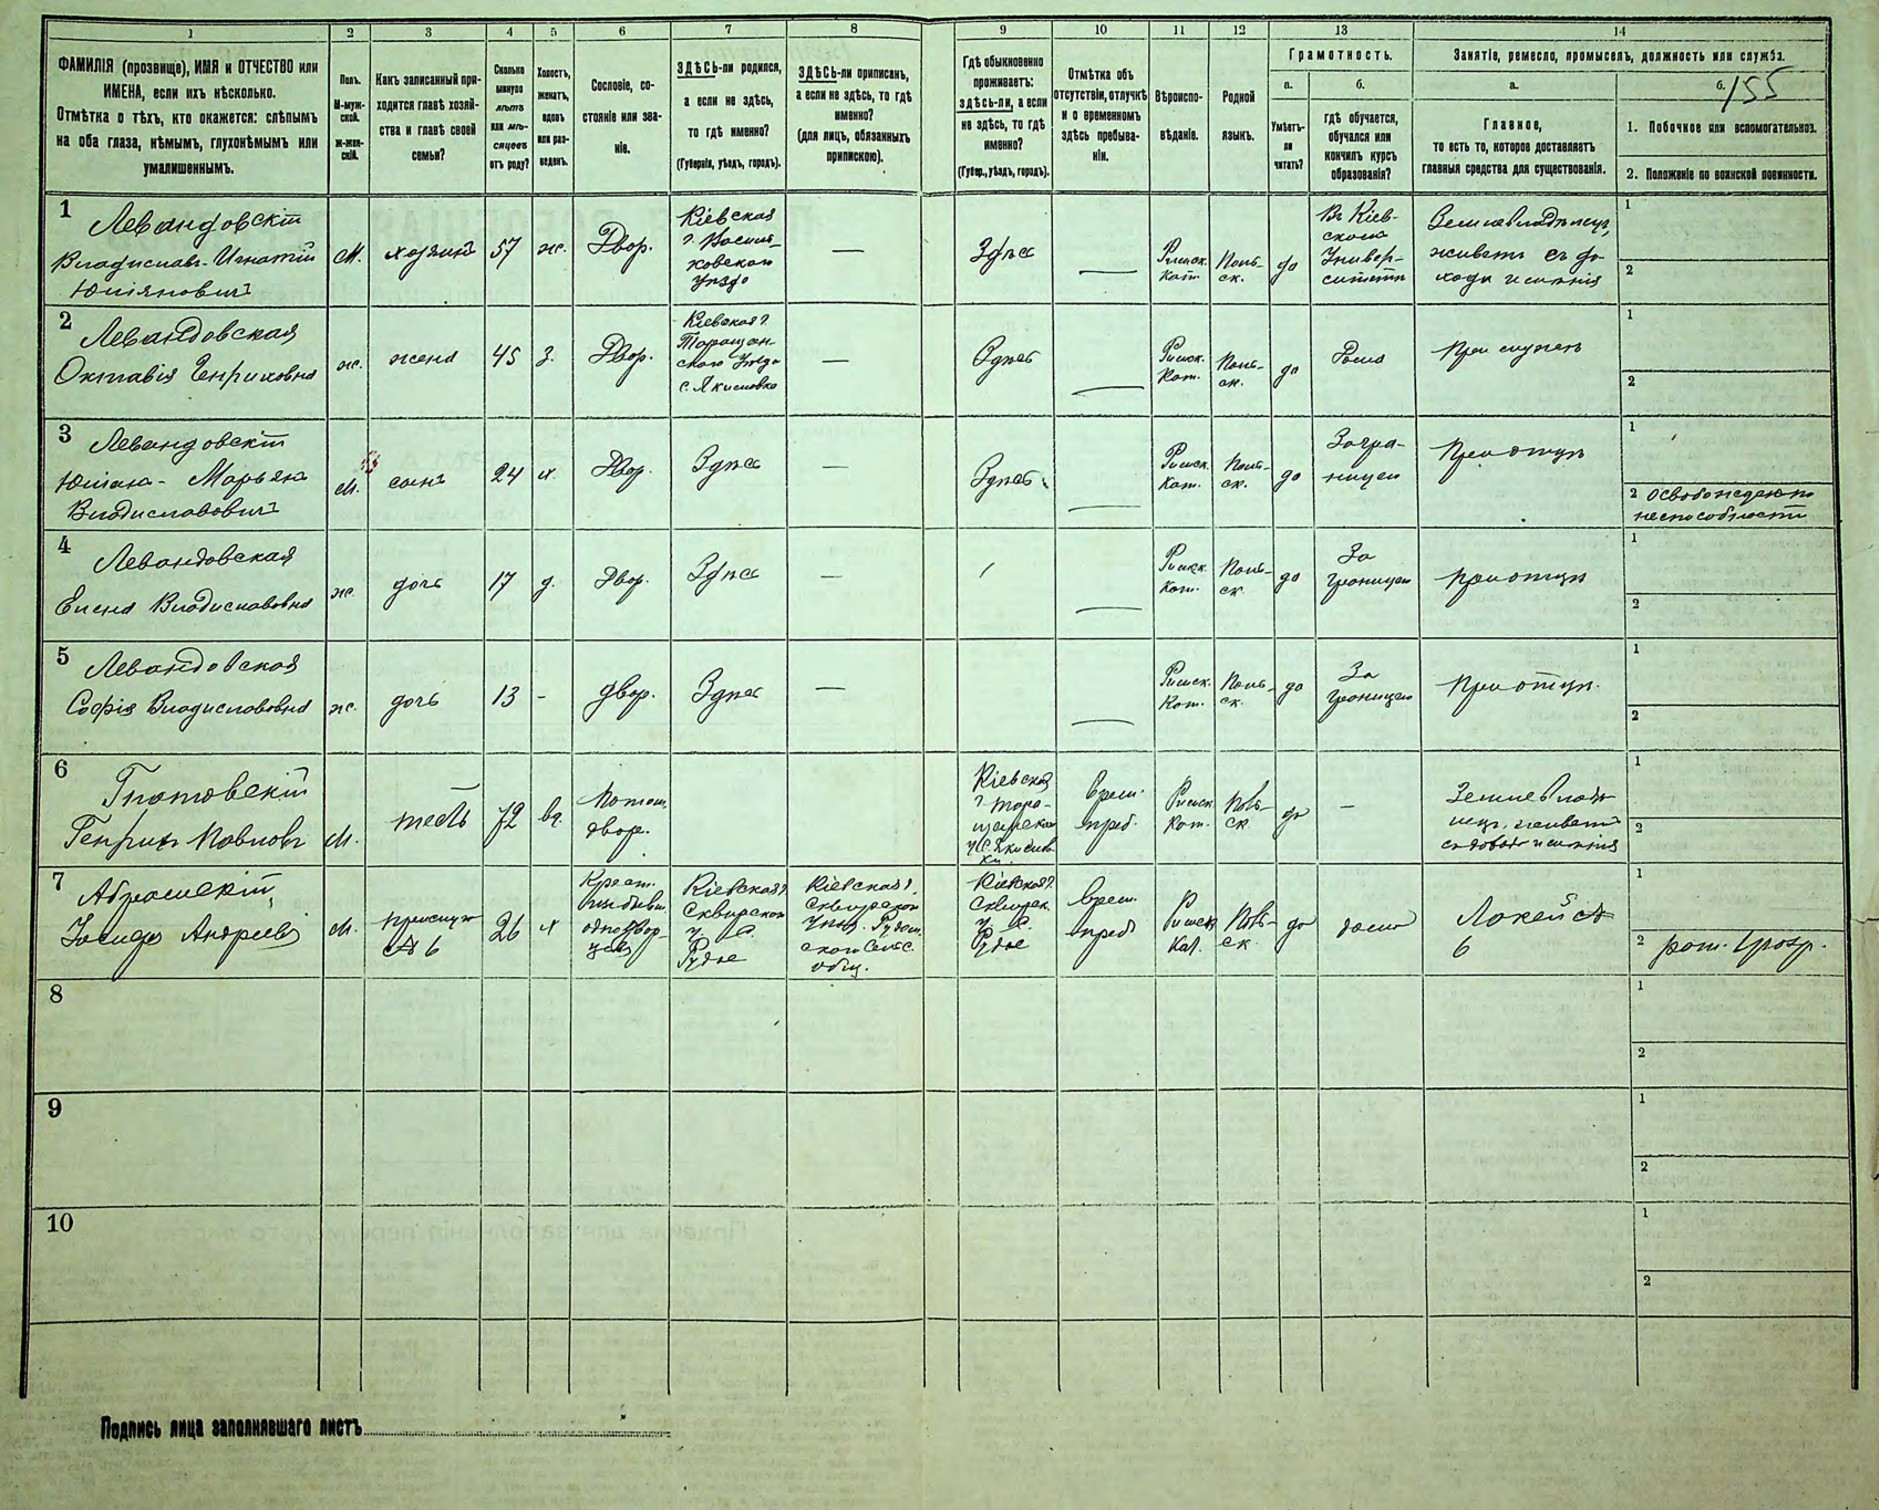 1 2 3 4 5 6 7 8 9 10 11 12 13 14
ФАМИЛІЯ (прозвище), ИМЯ и ОТЧЕСТВО или
ИМЕНА, если ихъ нѣсколько.
Отмѣтка о тѣхъ, кто окажется: слѣпымъ
на оба глаза, нѣмымъ, глухонѣмымъ или
умалишеннымъ.
Полъ.
М-муж-
ской.
ж-жен-
скій.
Какъ записанный при-
ходится главѣ хозяй-
ства и главѣ своей
семьи?
Сколько
минуло
лѣтъ
или мѣ-
сяцевъ
отъ роду?
Холостъ,
женатъ,
вдовъ
или раз-
веденъ.
Сословіе, со-
стояніе или зва-
ніе.
ЗДѢСЬ-ли родился,
а если не здѣсь,
то гдѣ именно?
(Губернія, уѣздъ, городъ).
ЗДѢСЬ-ли приписанъ,
а если не здѣсь, то гдѣ
именно?
(для лицъ, обязанныхъ
припискою).
Гдѣ обыкновенно
проживаетъ:
здѣсь-ли, а если
не здѣсь, то гдѣ
именно?
(Губер., уѣздъ, городъ).
Отмѣтка объ
отсутствіи, отлучкѣ
и о временномъ
здѣсь пребыва-
ніи.
Вѣроиспо-
вѣданіе.
Родной
языкъ.
Грамотность.
а.
Умѣетъ-
ли
читать?
б.
гдѣ обучается,
обучался или
кончилъ курсъ
образованія?
Занятіе, ремесло, промыселъ, должность или служба.
а.
Главное,
то есть то, которое доставляетъ
главныя средства для существованія.
б.
155
1. Побочное или вспомогательное.
2. Положеніе по воинской повинности.
1
Левандовскій
Владиславъ-Игнатій
Юліяновичъ
М.
хозяинъ
57
ж.
Двор.
Кіевская
г. Василь-
ковскаго
уѣзда
—
Здѣсь
—
Римск.
Кат.
Поль-
ск.
да
Въ Кіев-
скомъ
Универ-
ситетѣ
Землевладѣлецъ,
живетъ съ до-
хода имѣнія
1
2
2
Левандовская
Октавія Генриховна
ж.
жена
45
з.
Двор.
Кіевская г.
Таращан-
скаго уѣзда
—
Здѣсь
—
Римск.
Кат.
Поль-
ск.
да
Дома
При мужѣ
1
2
3
Левандовскій
Юліанъ - Марьянъ
Владиславовичъ
М.
сынъ
24
х.
Двор.
Здѣсь
—
Здѣсь
—
Римск.
Кат.
Поль-
ск.
да
Загра-
ницей
При отцѣ
1
2 Освобожденъ по
неспособности
4
Левандовская
Елена Владиславовна
ж.
дочь
17
д.
Двор.
Здѣсь
—
—
Римск.
Кат.
Поль-
ск.
да
За
границей
При отцѣ
1
2
5
Левандовская
Софія Владиславовна
ж.
дочь
13
-
двор.
Здѣсь
—
—
Римск.
Кат.
Поль-
ск.
да
За
границей
При отцѣ.
1
2
6
Генрихъ Павловъ
М.
тесть
72
вд.
Потом.
двор.
Кіевской
г. Тара-
щанскаго
Врем.
преб.
Римск.
Кат.
Поль-
ск.
да
—
Землевладѣ-
лецъ, живетъ
съ доход. имѣнія
1
2
7
Андреевъ
М.
прислуга
№ 6
26
х
Крест.
изъ бывш.
однодвор-
цевъ
Кіевская г.
Сквирскаго
у. с.
Рудое
Кіевская г.
Сквирскаго
уѣзд.
общ.
Кіевская г.
Сквирск.
у. с.
Рудое
Врем.
преб.
Римск.
Кат.
Поль-
ск.
да
дома
Лакей №
6
1
2
8
1
2
9
1
2
10
1
2
Подпись лица заполнявшаго листъ